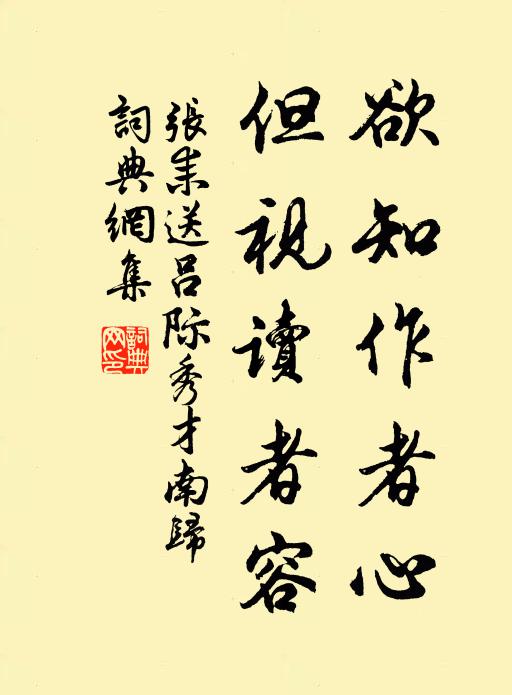 欲知作者心
但視讀者容
張耒送呂际秀才南歸
詞典網集
詞典网印